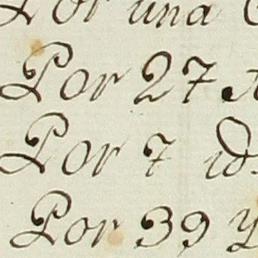 Por una
Por 27
Por 7 id.
Por 39